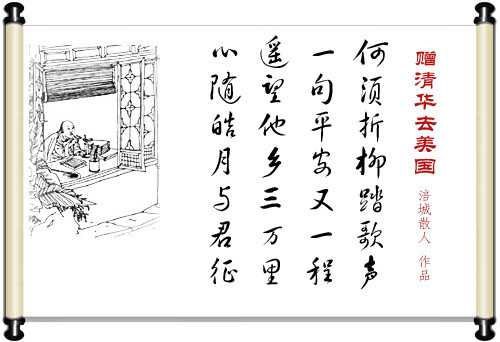 赠清华去美国
涪城散人 作品
何须折柳踏歌声
一句平安又一程
遥望他乡三万里
心随皓月与君征